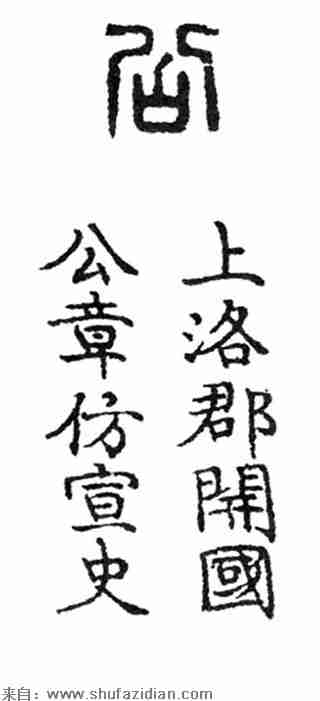 上洛郡開國
公章仿宣史
来自：www.shufazidian.com